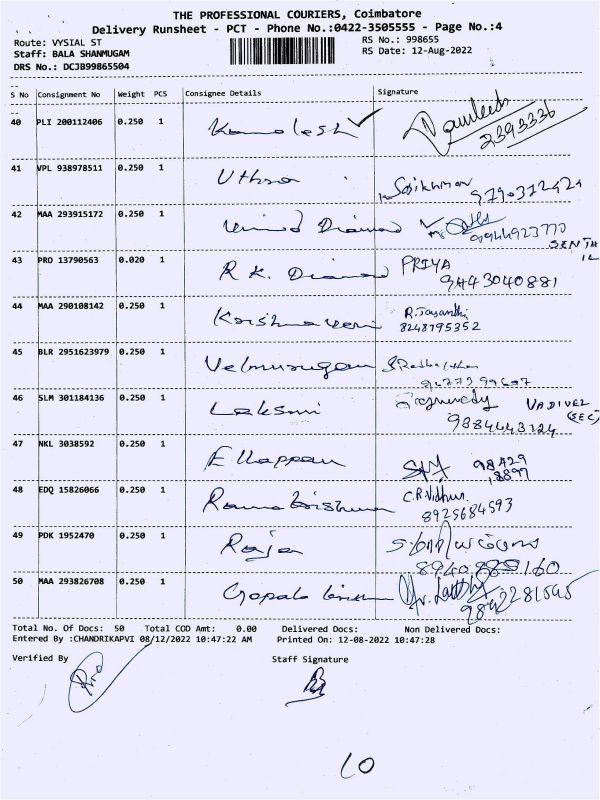 THE PROFESSIONAL COURIERS, Coimbatore
Delivery Runsheet - PCT - Phone No.:0422-3505555 - Page No.:4
Route: VYSIAL ST RS No.: 998655
Staff: BALA SHANMUGAM RS Date: 12-Aug-2022
DRS No.: DCJB99865504
S No Consignment No Weight PCS Consignee Details Signature
40 PLI 200112406 0.250 1 Kamalesh
2393336
41 VPL 938978511 0.250 1 Uthra
42 MAA 293915172 0.250 1 Vinod Diamond
9944923770
SENTHIL
43 PRO 13790563 0.020 1 R.K. Diamond PRIYA
9443040881
44 MAA 290108142 0.250 1 Krishnaveni R. Jayanthi
8248795352
45 BLR 2951623979 0.250 1 Velmurugan
46 SLM 301184136 0.250 1 Laksmi
VADIVEL
(SEC)
9884443124
47 NKL 3038592 0.250 1 Ellappan
98429
18897
48 EDQ 15826066 0.250 1 Ramakrishnan C.R. Vidhun
8925684593
49 PDK 1952470 0.250 1 Raja
50 MAA 293826708 0.250 1 Gopala krishnan
Total No. Of Docs: 50 Total COD Amt: 0.00 Delivered Docs: Non Delivered Docs:
Entered By :CHANDRIKAPVI 08/12/2022 10:47:22 AM Printed On: 12-08-2022 10:47:28
Verified By Staff Signature
10